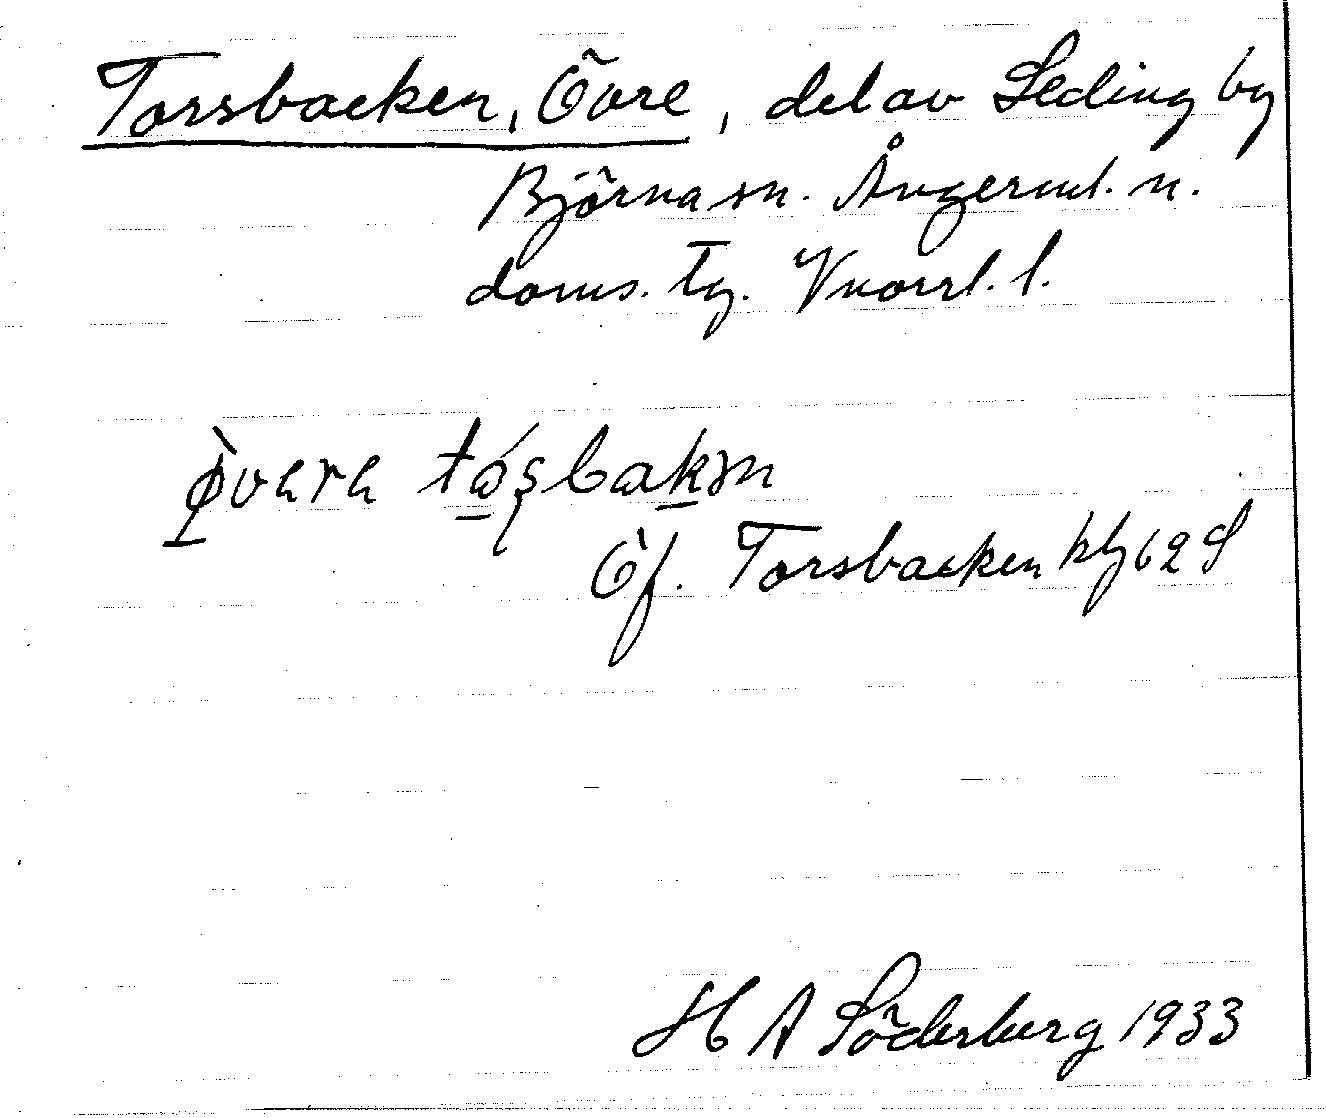 Torsbacken, Övre, del av Seding by
Björna sn. Ångerml. n.
doms. tg. Vnorrl. l.
Öf. Torsbacken kbl 62 S
H A Söderberg 1933